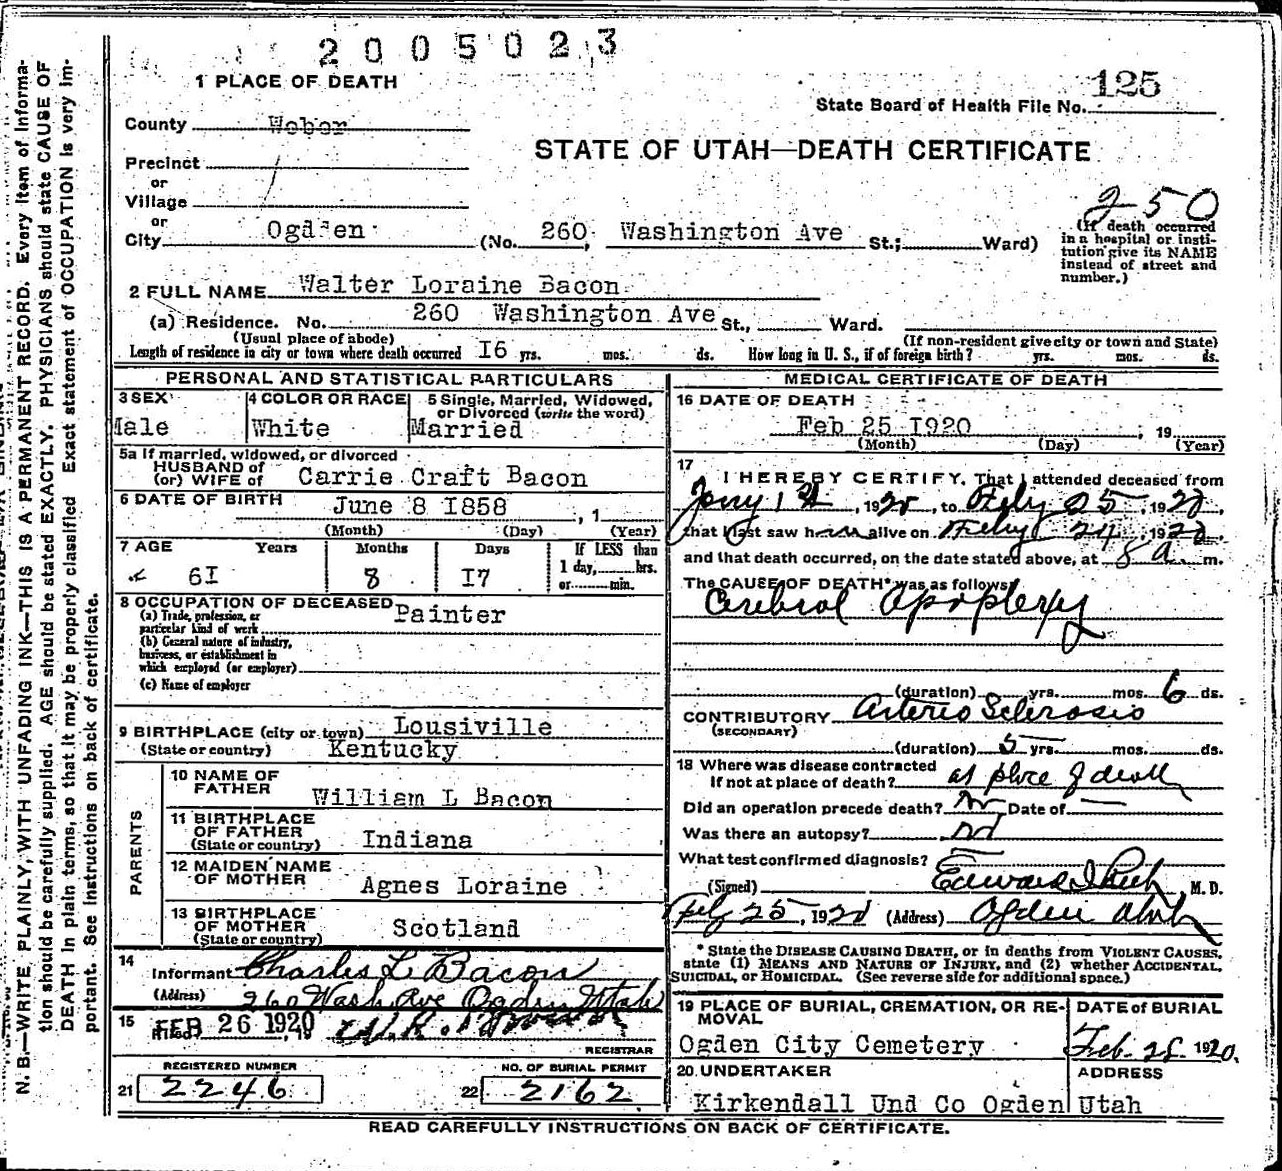 2005023
1 PLACE OF DEATH
125
State Board of Health File No.
County Weber
STATE OF UTAH—DEATH CERTIFICATE
Precinct
or
Village
or
250
City Ogden (No. 260, Washington Ave St.; Ward)
(If death occurred in a hospital or insti-
tution give its NAME
instead of street and
number.)
2 FULL NAME Walter Loraine Bacon
(a) Residence. No. 260 Washington Ave St., Ward.
(Usual place of abode) (If non-resident give city or town and State)
Length of residence in city or town where death occurred I6 yrs. mos. ds. How long in U. S., if of foreign birth? yrs. mos. ds.
PERSONAL AND STATISTICAL PARTICULARS
3 SEX
Male
4 COLOR OR RACE
White
5 Single, Married, Widowed,
or Divorced (write the word)
Married
5a If married, widowed, or divorced
HUSBAND of
(or) WIFE of Carrie Craft Bacon
6 DATE OF BIRTH June 8 I858, 1
(Month) (Day) (Year)
7 AGE Years Months Days If LESS than
1 day, hrs.
or min.
6I 8 I7
8 OCCUPATION OF DECEASED
(a) Trade, profession, or
particular kind of work Painter
(b) General nature of industry,
business, or establishment in
which employed (or employer)
(c) Name of employer
9 BIRTHPLACE (city or town) Lousiville
(State or country) Kentucky
PARENTS
10 NAME OF
FATHER William L Bacon
11 BIRTHPLACE
OF FATHER
(State or country) Indiana
12 MAIDEN NAME
OF MOTHER Agnes Loraine
13 BIRTHPLACE
OF MOTHER
(State or country) Scotland
14
Informant Charles L. Bacon
(Address) 260 Wash Ave Ogden Utah
15 Filed FEB 26 1920, 19
REGISTRAR
REGISTERED NUMBER
21 2246
NO. OF BURIAL PERMIT
22 2162
MEDICAL CERTIFICATE OF DEATH
16 DATE OF DEATH
Feb 25 I920, 19
(Month) (Day) (Year)
17
I HEREBY CERTIFY, That I attended deceased from
1920, to Feby 25, 1920,
that I last saw him alive on Feby 24, 1920,
and that death occurred, on the date stated above, at 8 a. m.
The CAUSE OF DEATH* was as follows:
Cerebral Apoplexy
(duration) yrs. mos. 6 ds.
CONTRIBUTORY Arterio Sclerosis
(SECONDARY)
(duration) 5 yrs. mos. ds.
18 Where was disease contracted
If not at place of death? at place of death
Did an operation precede death? No Date of —
Was there an autopsy? No
What test confirmed diagnosis? —
(Signed) Edward I. M. D.
Feby 25, 1920 (Address) Ogden Utah
* State the DISEASE CAUSING DEATH, or in deaths from VIOLENT CAUSES,
state (1) MEANS AND NATURE OF INJURY, and (2) whether ACCIDENTAL,
SUICIDAL, or HOMICIDAL. (See reverse side for additional space.)
19 PLACE OF BURIAL, CREMATION, OR RE-
MOVAL
Ogden City Cemetery
DATE of BURIAL
Feb. 28. 1920.
20 UNDERTAKER
Kirkendall Und Co Ogden
ADDRESS
Utah
READ CAREFULLY INSTRUCTIONS ON BACK OF CERTIFICATE.
N. B.—WRITE PLAINLY, WITH UNFADING INK—THIS IS A PERMANENT RECORD. Every item of informa-
tion should be carefully supplied. AGE should be stated EXACTLY. PHYSICIANS should state CAUSE OF
DEATH in plain terms, so that it may be properly classified. Exact statement of OCCUPATION is very im-
portant. See instructions on back of certificate.